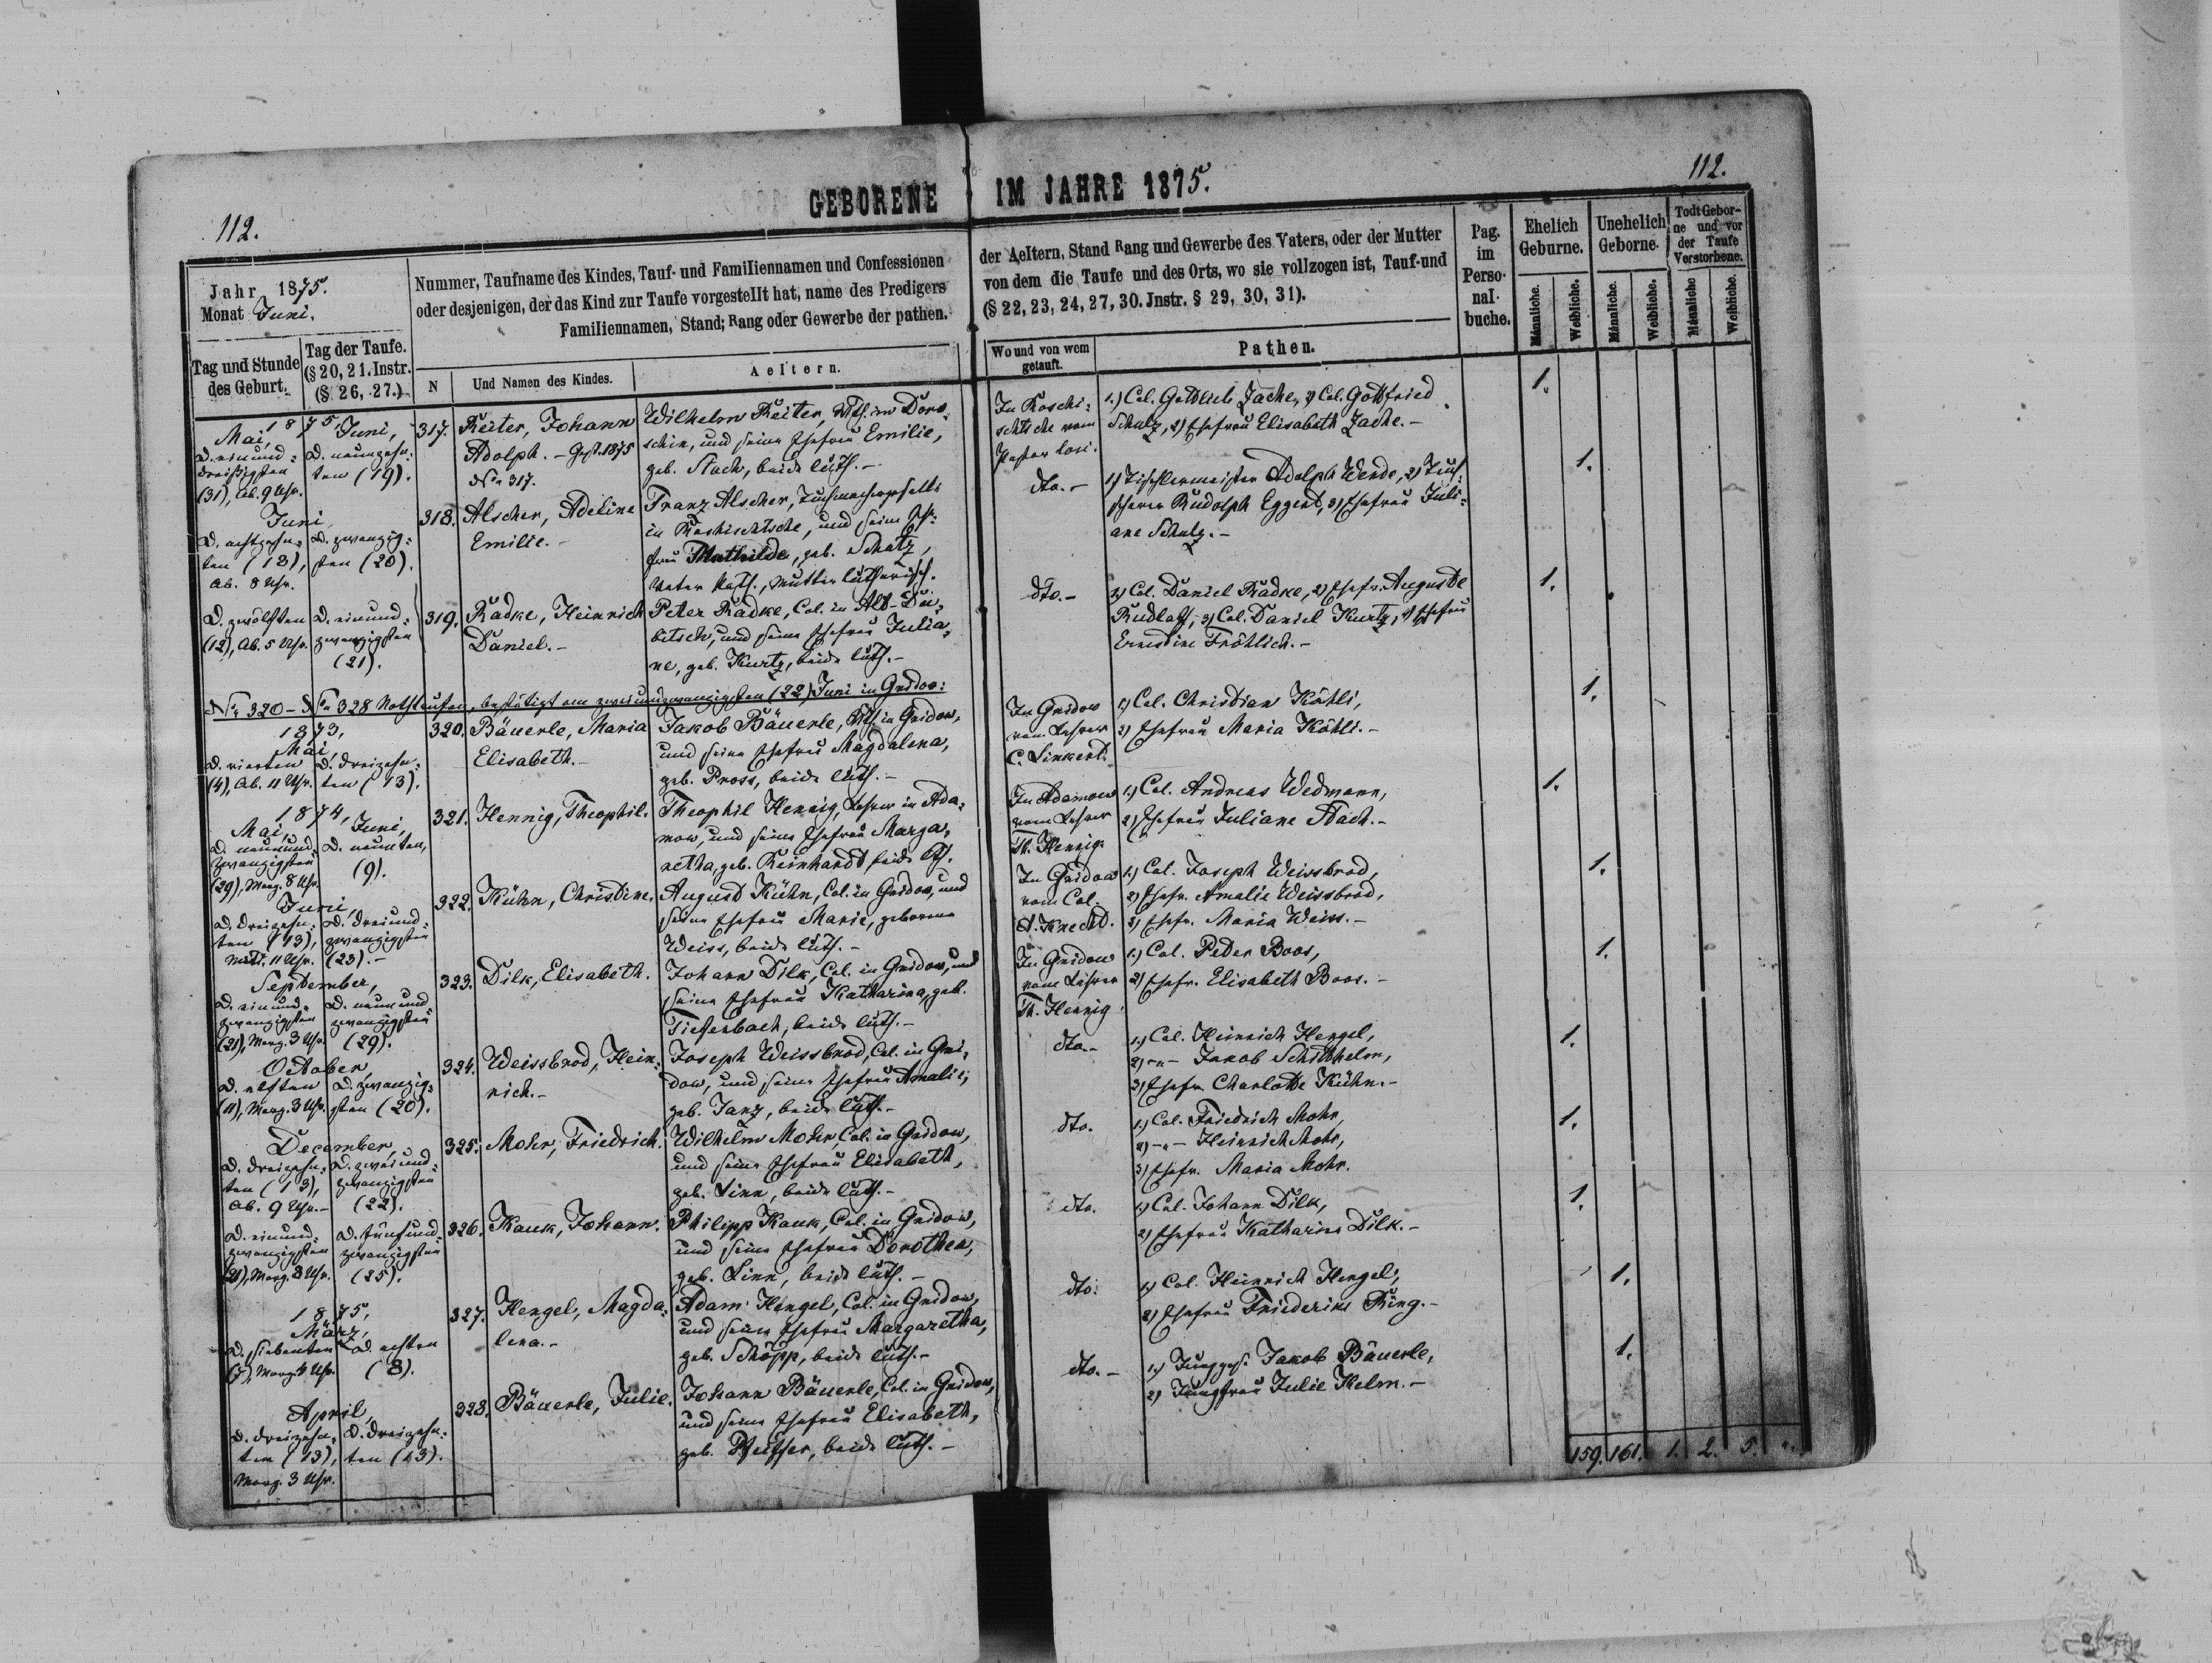 GEBORENE IM JAHRE 1875.
112.
112.
Jahr 1875.
Monat Juni.
Nummer, Taufname des Kindes, Tauf- und Familiennamen und Confessionen
oder desjenigen, der das Kind zur Taufe vorgestellt hat, name des Predigers
Familiennamen, Stand; Rang oder Gewerbe der pathen.
der Aeltern, Stand Rang und Gewerbe des Vaters, oder der Mutter
von dem die Taufe und des Orts, wo sie vollzogen ist, Tauf-und
(§ 22, 23, 24, 27, 30. Jnstr. § 29, 30, 31).
Pag.
im
Perso-
nal-
buche.
Ehelich
Geburne.
Unehelich
Geborne.
Todt Gebor-
ne und vor
der Taufe
Verstorbene.
Männliche.
Weibliche.
Männliche.
Weibliche.
Männliche
Weibliche.
Tag und Stunde
des Geburt.
Tag der Taufe.
(§ 20, 21. Instr.
(§ 26, 27.)
N
Und Namen des Kindes.
Aeltern.
Wo und von wem
getauft.
Pathen.
1875,
Mai, Juni,
D. einund-
dreißigsten
(31), Ab. 9 Uhr.
D. neunzehn-
ten (19).
317.
Reiter, Johann
Adolph. - Gest. 1875
No 317.
Wilhelm Reiter,
schin, und seine Ehefrau Emilie,
geb. Stach, beide luth. -
In Roschi-
schtsche vom
Pastor
1.) Col. Gottlieb Zache, 2) Col. Gottfried
Schulz, 3) Ehefrau Elisabeth Zache. -
1.
Juni,
D. achtzehn-
ten (18),
Ab. 8 Uhr.
D. zwanzig-
sten (20).
318.
Alscher, Adeline
Emilie. -
Franz Alscher, Tuchmachergeselle
in Roshischtsche, und seine Ehe-
frau Mathilde, geb. Schatz,
Vater kath., Mutter lutherisch.
dto. -
1) Tischlermeister Adolph Wende, 2) Tuch-
scherer Rudolph Eggert, 3) Ehefrau Juli-
ane Schulz. -
1.
D. zwölften
(12), Ab. 5 Uhr.
D. einund-
zwanzigsten
(21).
319.
Radke, Heinrich
Daniel. -
Peter Radke, Col. in Alt-Du-
bitsch, und seine Ehefrau Julia-
ne, geb. Kurtz, beide luth. -
dto. -
1) Col. Daniel Radke, 2) Ehefr. Auguste
Rudlaff, 3) Col. Daniel Kurtz, 4) Ehefrau
Ernestine Fröhlich. -
1.
No 320 - No 328 Nothtaufen, bestätigt am zweiundzwanzigsten (22) Juni in Gnidow:
1873,
Mai,
D. vierten
(4), Ab. 11 Uhr.
D. dreizehn-
ten (13).
320.
Bäuerle, Maria
Elisabeth. -
Jakob Bäuerle, in Gnidow,
und seine Ehefrau Magdalena,
geb. Pross, beide luth. -
In Gnidow
vom Lehrer
C. Linkert.
1) Col. Christian Köhli,
2) Ehefrau Maria Köhli. -
1.
1874,
Mai, Juni,
D. neunund-
zwanzigsten
(29), Morg. 8 Uhr.
D. neunten,
(9).
321.
Hennig, Theophil.
Theophil Hennig, Lehrer in Ada-
mow, und seine Ehefrau Marga-
retha, geb. Reinhardt, beide luth.
In Adamow
vom Lehrer
Th. Hennig.
1.) Col. Andreas Wedmann,
2) Ehefrau Juliane Stach. -
1.
Juni,
D. dreizehn-
ten (13),
Mitt. 11 Uhr.
D. dreiund-
zwanzigsten
(23). -
322.
Kühn, Christine.
August Kühn, Col. in Gnidow, und
seine Ehefrau Marie, geborene
Weiss, beide luth. -
In Gnidow
vom Col.
A. Knecht.
1.) Col. Joseph Weissbrod,
2) Ehefr. Amalie Weissbrod,
3) Ehefr. Maria Weiss. -
1.
September,
D. einund-
zwanzigsten
(21), Morg. 3 Uhr.
D. neunund
zwanzigsten
(29).
323.
Dilk, Elisabeth.
Johann Dilk, Col. in Gnidow, und
seine Ehefrau Katharina, geb.
Tiefenbach, beide luth. -
In Gnidow
vom Lehrer
Th. Hennig.
1.) Col. Peter Boos,
2) Ehefr. Elisabeth Boos. -
1.
October,
D. elften
(11), Morg. 3 Uhr.
D. zwanzig-
sten (20).
324.
Weissbrod, Hein-
rich. -
Joseph Weissbrod, Col. in Gni-
dow, und seine Ehefrau Amalie,
geb. Janz, beide luth. -
dto. -
1.) Col. Heinrich Hengel,
2) -"- Jakob Schitthelm,
3) Ehefr. Charlotte Kühn. -
1.
December,
D. dreizehn-
ten (13),
Ab. 9 Uhr. -
D. zweiund-
zwanzigsten
(22).
325.
Mohr, Friedrich.
Wilhelm Mohr, Col. in Gnidow,
und seine Ehefrau Elisabeth,
geb. Linn, beide luth. -
dto.
1.) Col. Friedrich Mohr,
2) -"- Heinrich Mohr,
3) Ehefr. Maria Mohr.
1.
D. einund-
zwanzigsten
(21), Morg. 8 Uhr.
D. fünfund-
zwanzigsten
(25).
326.
Kauk, Johann.
Philipp Kauk, Col. in Gnidow,
und seine Ehefrau Dorothea,
geb. Linn, beide luth. -
dto.
1) Col. Johann Dilk,
2) Ehefrau Katharina Dilk. -
1.
1875,
März,
D. siebenten
(7), Morg. 4 Uhr.
D. achten
(8).
327.
Hengel, Magda-
lena. -
Adam Hengel, Col. in Gnidow,
und seine Ehefrau Margaretha,
geb. Schöpp, beide luth. -
dto.
1.) Col. Heinrich Hengel,
2) Ehefrau Friederike Ring. -
1.
April,
D. dreizehn-
ten (13),
Morg. 3 Uhr.
D. dreizehn-
ten (13).
328.
Bäuerle, Julie.
Johann Bäuerle, Col. in Gnidow,
und seine Ehefrau Elisabeth,
geb. beide luth. -
dto. -
1.) Junggес. Jakob Bäuerle,
2) Jungfrau Julie Helm. -
1.
159. 161. 1. 2. 5.